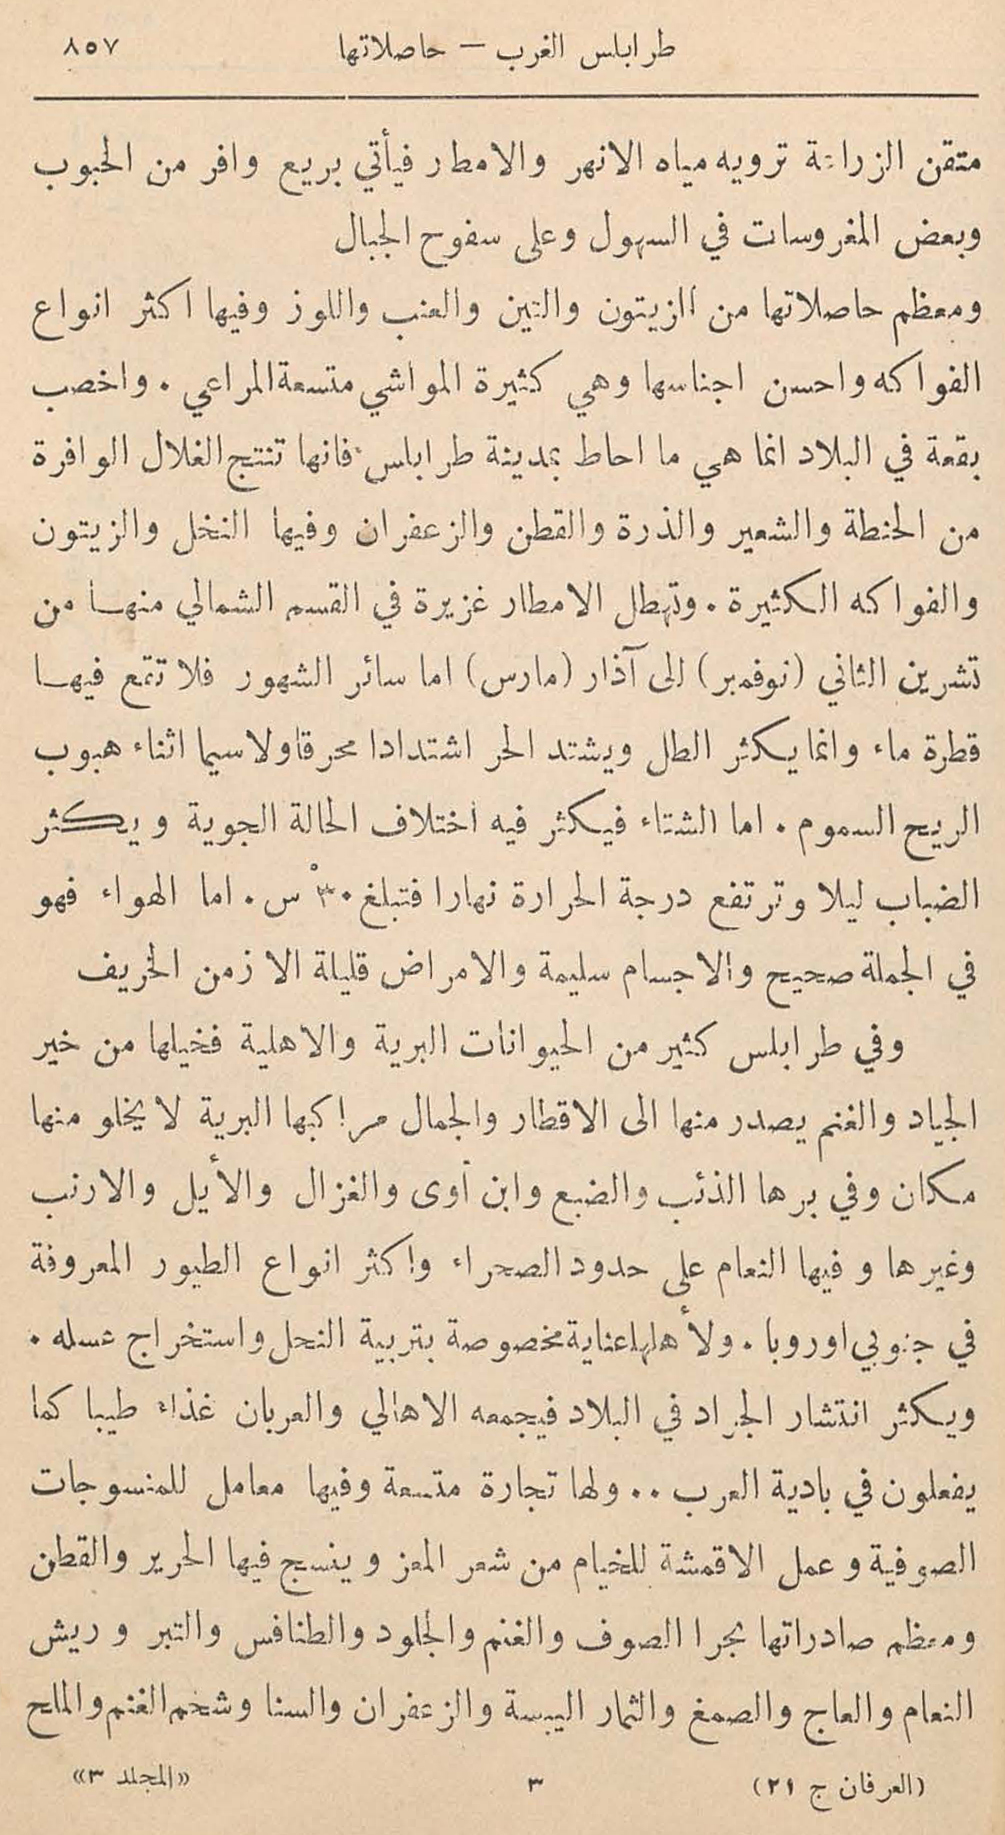 طرابلس الغرب — حاصلاتها ٨٥٧
متقن الزراعة ترويه مياه الانهر والامطار فيأتي بريع وافر من الحبوب
وبعض المغروسات في السهول وعلى سفوح الجبال
ومعظم حاصلاتها من الزيتون والتين والعنب واللوز وفيها اكثر انواع
الفواكه واحسن اجناسها وهي كثيرة المواشي متسعة المراعي . واخصب
بقعة في البلاد انما هي ما احاط بمدينة طرابلس فانها تنتج الغلال الوافرة
من الحنطة والشعير والذرة والقطن والزعفران وفيها النخل والزيتون
والفواكه الكثيرة . وتهطل الامطار غزيرة في القسم الشمالي منها من
تشرين الثاني (نوفمبر) الى آذار (مارس) اما سائر الشهور فلا تقع فيها
قطرة ماء وانما يكثر الطل ويشتد الحر اشتدادا محرقا ولاسيما اثناء هبوب
الريح السموم . اما الشتاء فيكثر فيه اختلاف الحالة الجوية ويكثر
الضباب ليلا وترتفع درجة الحرارة نهارا فتبلغ ٣٠ْ س . اما الهواء فهو
في الجملة صحيح والاجسام سليمة والامراض قليلة الا زمن الخريف
وفي طرابلس كثير من الحيوانات البرية والاهلية فخيلها من خير
الجياد والغنم يصدر منها الى الاقطار والجمال مراكبها البرية لا يخلو منها
مكان وفي برها الذئب والضبع وابن آوى والغزال والأيل والارنب
وغيرها وفيها النعام على حدود الصحراء واكثر انواع الطيور المعروفة
في جنوبي اوروبا . ولأهلها عناية مخصوصة بتربية النحل واستخراج عسله .
ويكثر انتشار الجراد في البلاد فيجمعه الاهالي والعربان غذاء طيبا كما
يفعلون في بادية العرب .. ولها تجارة متسعة وفيها معامل للمنسوجات
الصوفية وعمل الاقمشة للخيام من شعر المعز وينسج فيها الحرير والقطن
ومعظم صادراتها بحرا الصوف والغنم والجلود والطنافس والتبر وريش
النعام والعاج والصمغ والثمار اليبسة والزعفران والسنا وشحم الغنم والملح
(العرفان ج ٢١) ٣ «المجلد ٣»